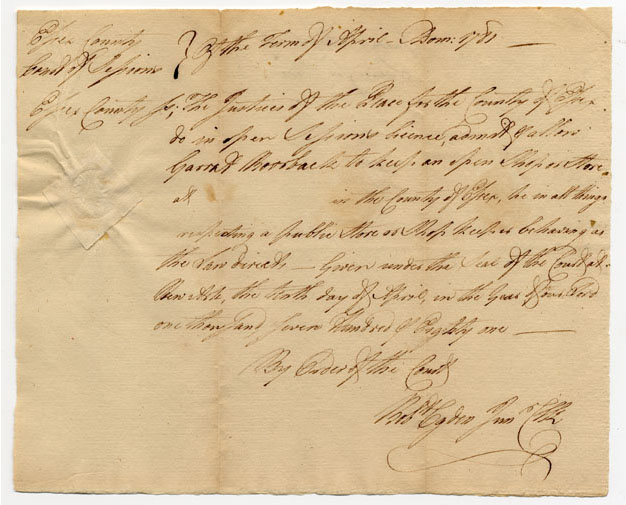 Essex County
Court of Sessions } Of the Term of April - Dom: 1781 —
Essex County ss; The Justices of the Peace for the County of Essex
do in open Sessions licence, admit & allow
Garrat to keep an open Shop or Store
at in the County of Essex, he in all things
respecting a public Store or Shop keeper behaving as
the Law directs — Given under the Seal of the Court at
New Ark, the tenth day of April, in the Year of our Lord
one thousand seven Hundred & Eighty one —
By Order of the Court
Robt Ogden Junr Clk